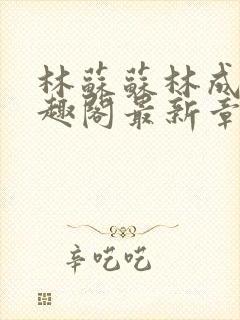 林蘇蘇林成
趣閣最新章
辛吃吃